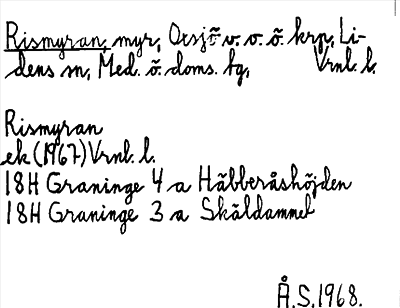 Rismyran, myr, Oxsjö v. o. ö. krp, Li-
dens sn, Med. ö. doms. tg, Vrnl. l.
Rismyran
ek (1967) Vrnl. l.
18H Graninge 4 a Häbberåshöjden
18H Graninge 3 a Skäldammet
Å.S. 1968.